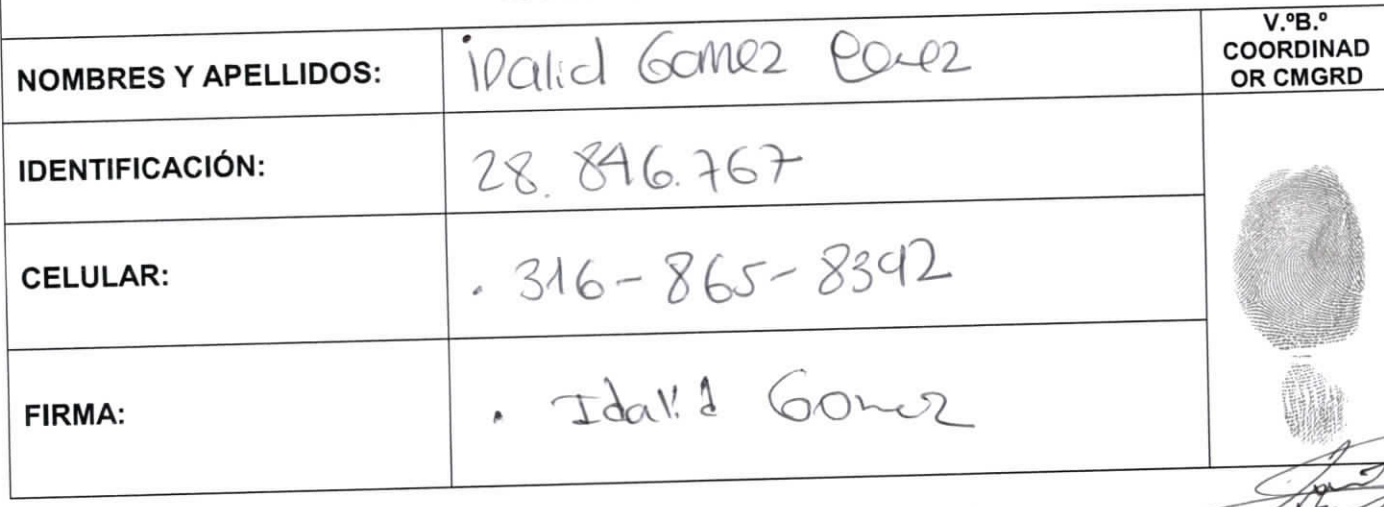 NOMBRES Y APELLIDOS: iDalid Gomez Perez
V.ºB.º
COORDINAD
OR CMGRD
IDENTIFICACIÓN: 28.846.767
CELULAR: . 316-865-8392
FIRMA: . Idalid Gomez